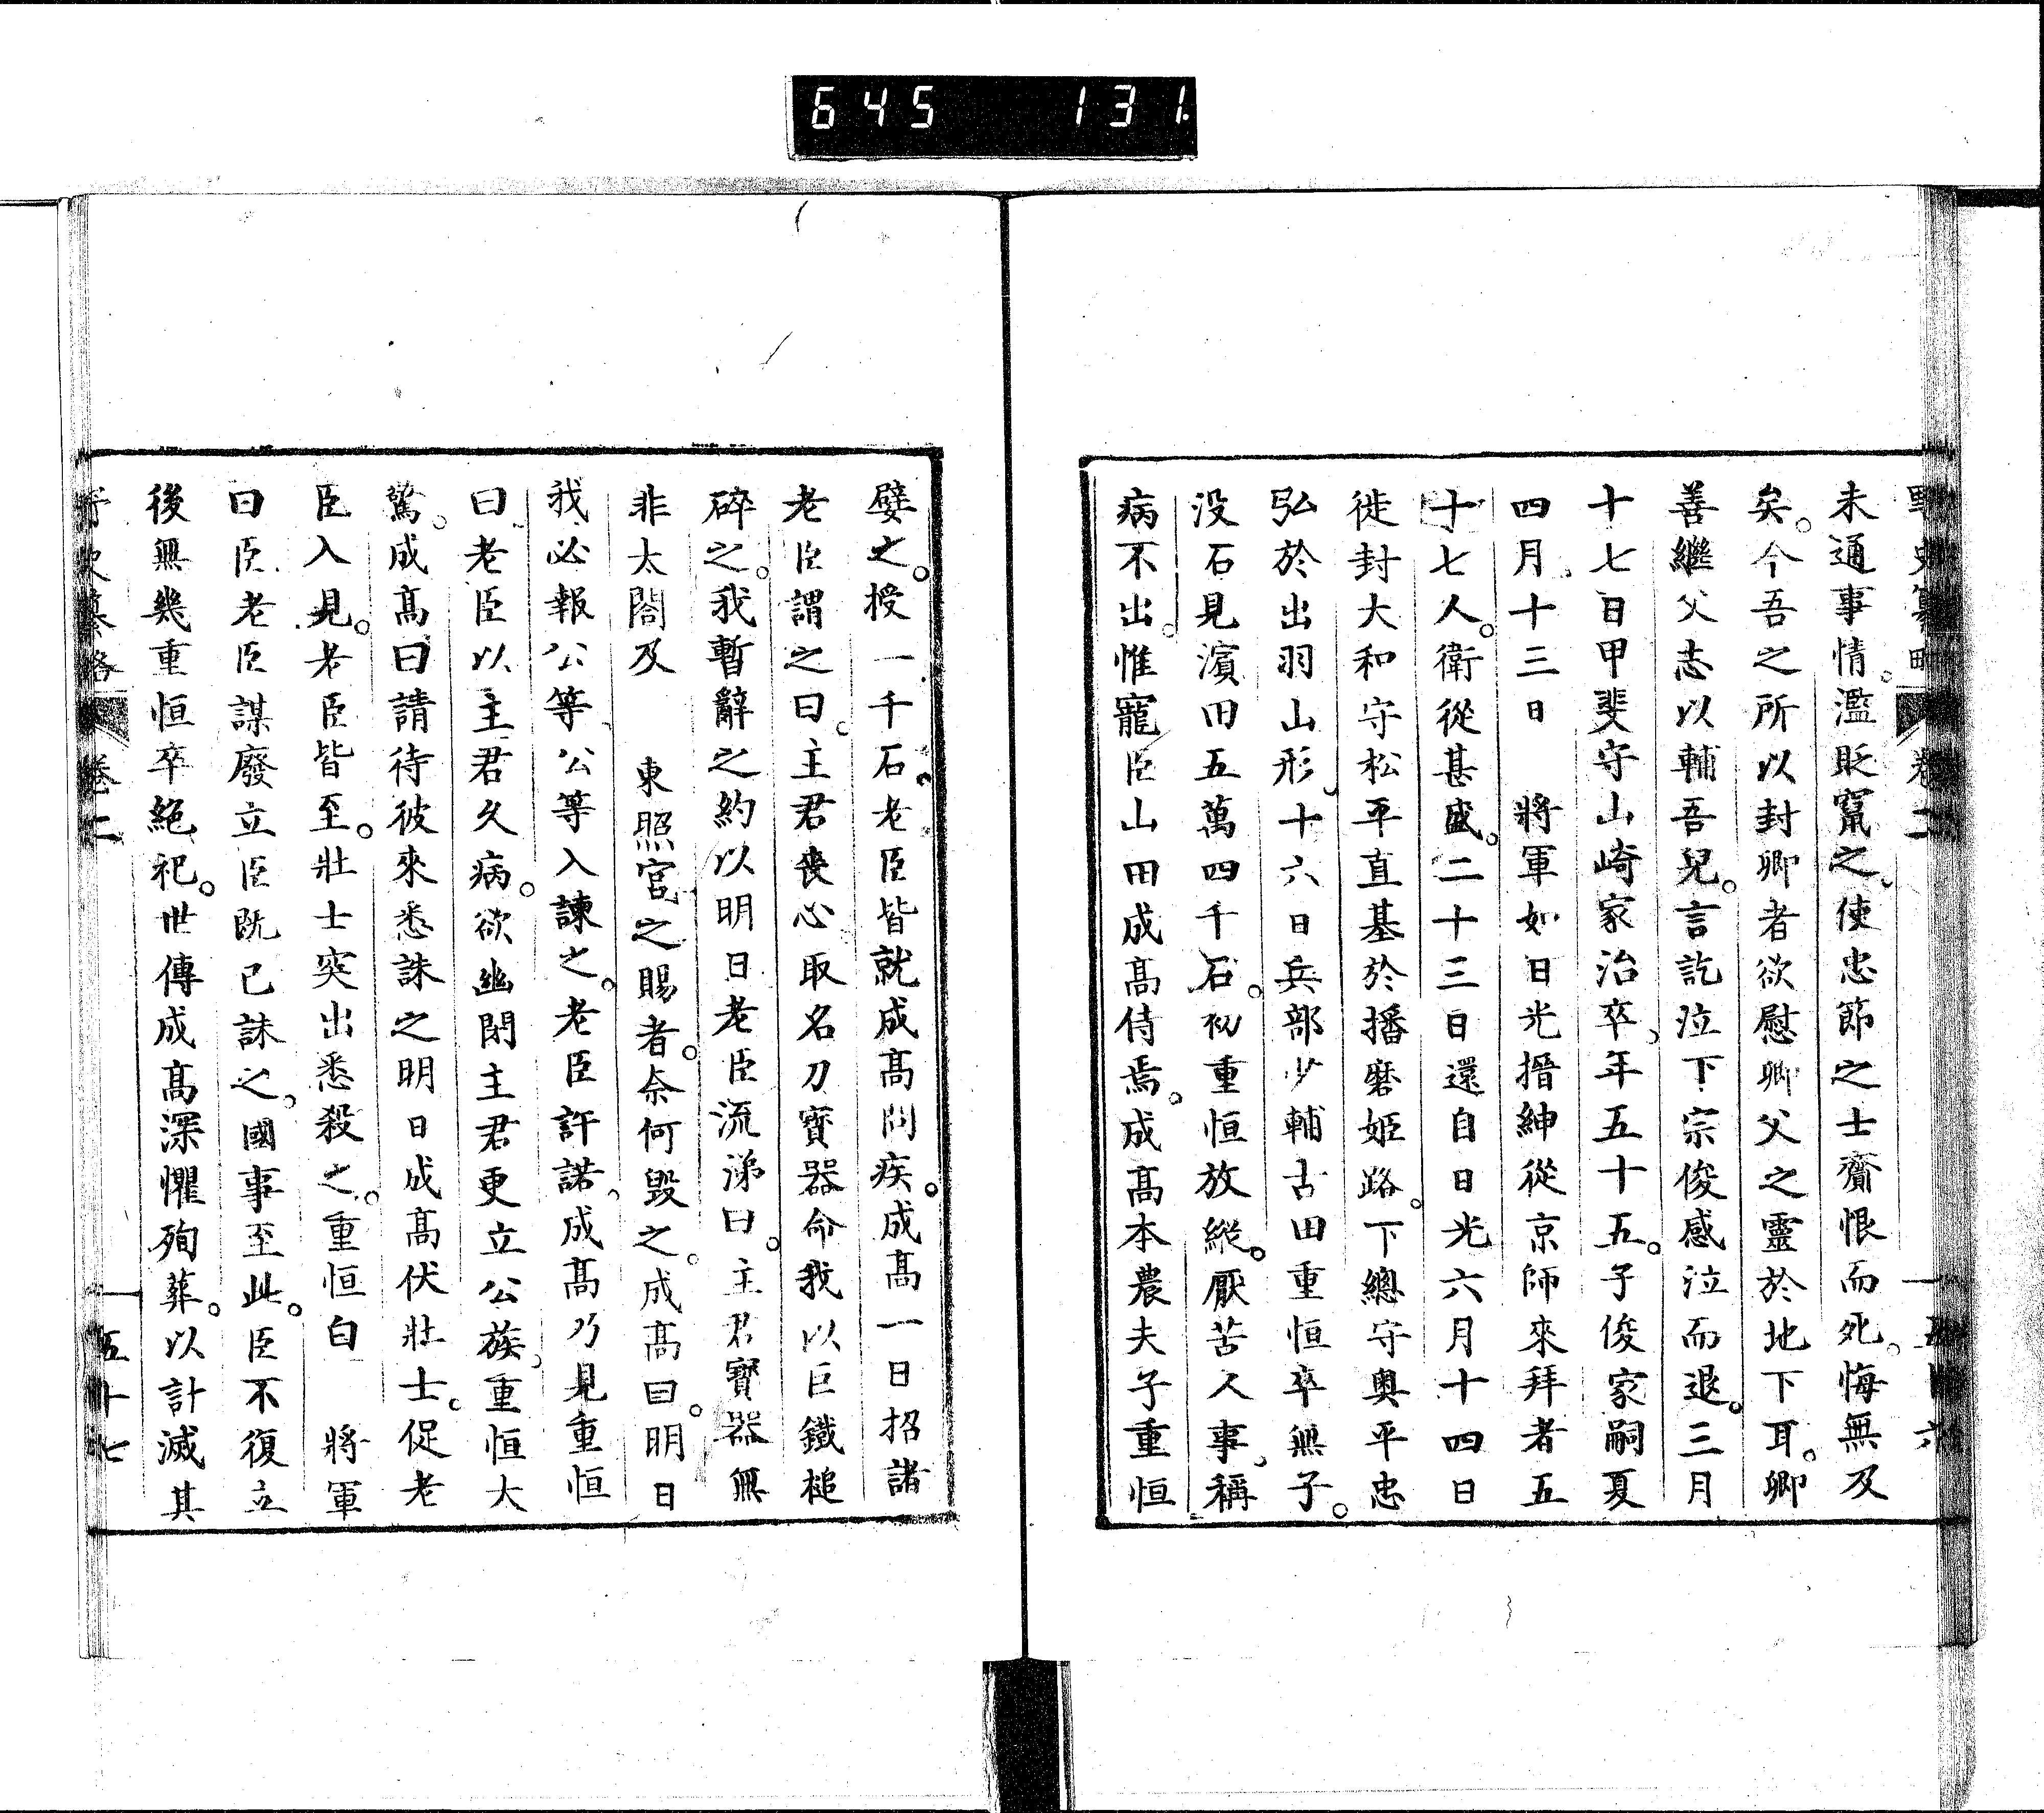 645 131
未通事情。濫貶竄之。使忠節之士齎恨而死。悔無及
矣。今吾之所以封卿者欲慰卿父之靈於地下耳。卿
善繼父志以輔吾兒。言訖泣下宗俊感泣而退。三月
十七日甲斐守山崎家治卒。年五十五。子俊家嗣夏
四月。十三日 將軍如日光搢紳從京師來拜者五
十七人。衛從甚盛。二十三日還自日光六月十四日
徙封大和守松平直基於播磨姫路。下總守奥平忠
弘於出羽山形。十六日兵部少輔古田重恒卒無子。
没石見濱田五萬四千石。初重恒放縱。厭苦人事。稱
病不出。惟寵臣山田成髙侍焉。成髙本農夫子重恒
嬖之。授一千石。老臣皆就成髙問疾。成髙一日招諸
老臣謂之曰。主君喪心取名刀寳器命我以巨鐵槌
碎之。我暫辭之約以明日老臣流涕曰。主君寳器無
非太閤及 東照宮之賜者。奈何毀之。成髙曰。明日
我必報公等。公等入諫之。老臣許諾。成髙乃見重恒
曰。老臣以主君久病。欲幽閉主君更立公族。重恒大
驚。成髙曰請待彼來悉誅之明日成髙伏壯士。促老
臣入見。老臣皆至。壯士突出悉殺之。重恒白 將軍
曰臣老臣謀廢立臣既已誅之。國事至此。臣不復立
後無幾重恒卒絶祀。世傳成髙深懼殉葬。以計滅其
野史纂略 卷二 一五十七